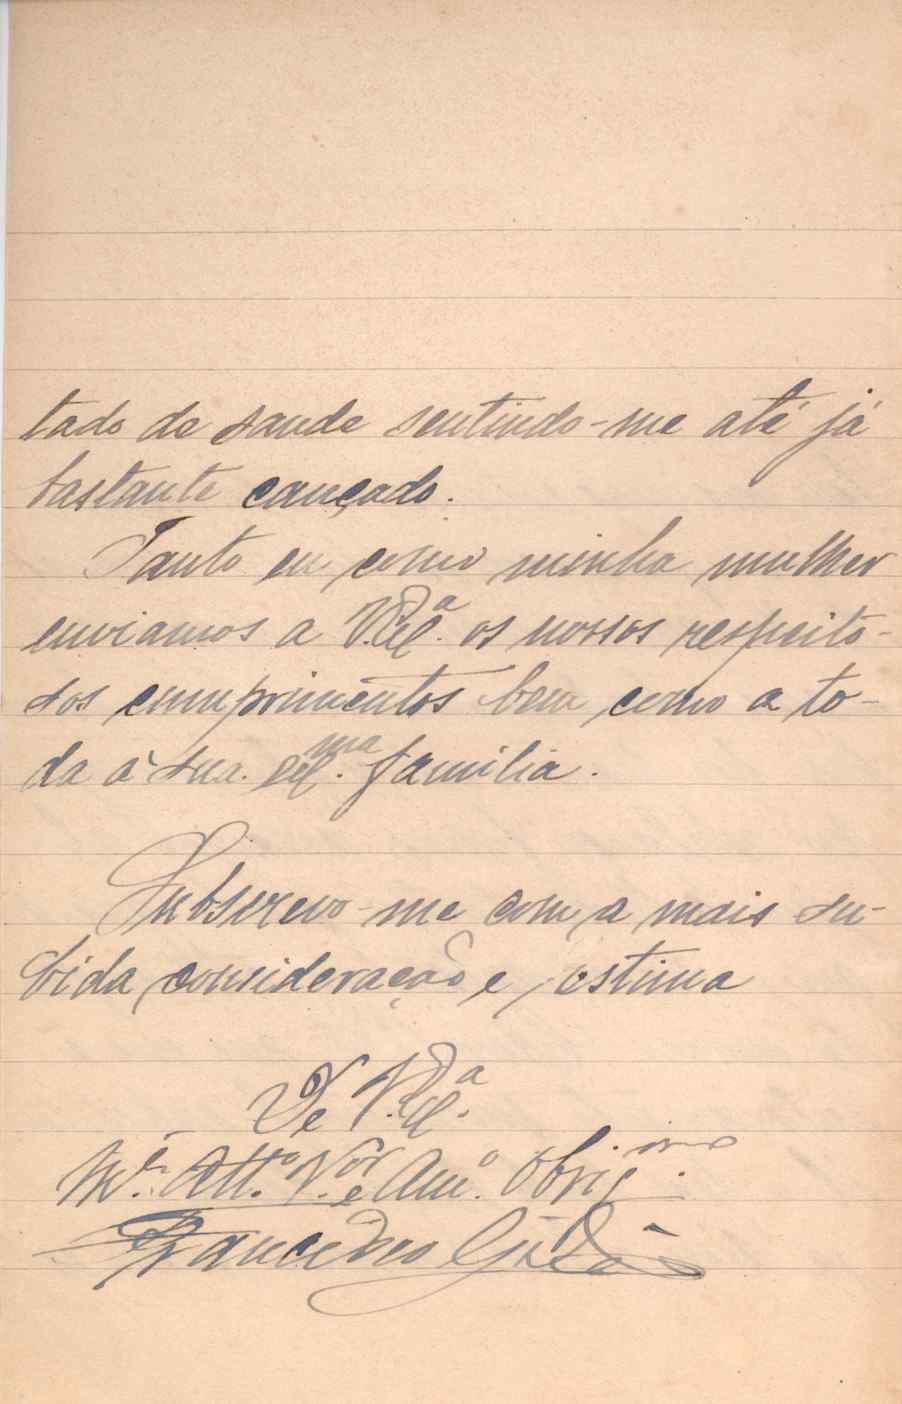 tado de saude sentindo-me até já
bastante cançado.
Tanto eu como minha mulher
enviamos a V.Exª. os nossos respeito-
sos cumprimentos bem como a to-
da a sua Exma. familia.
Subscrevo-me com a mais su-
bida consideração e estima
De V.Exª.
Mº. Attº. V.or e Amº. Obrigmo.
Francisco